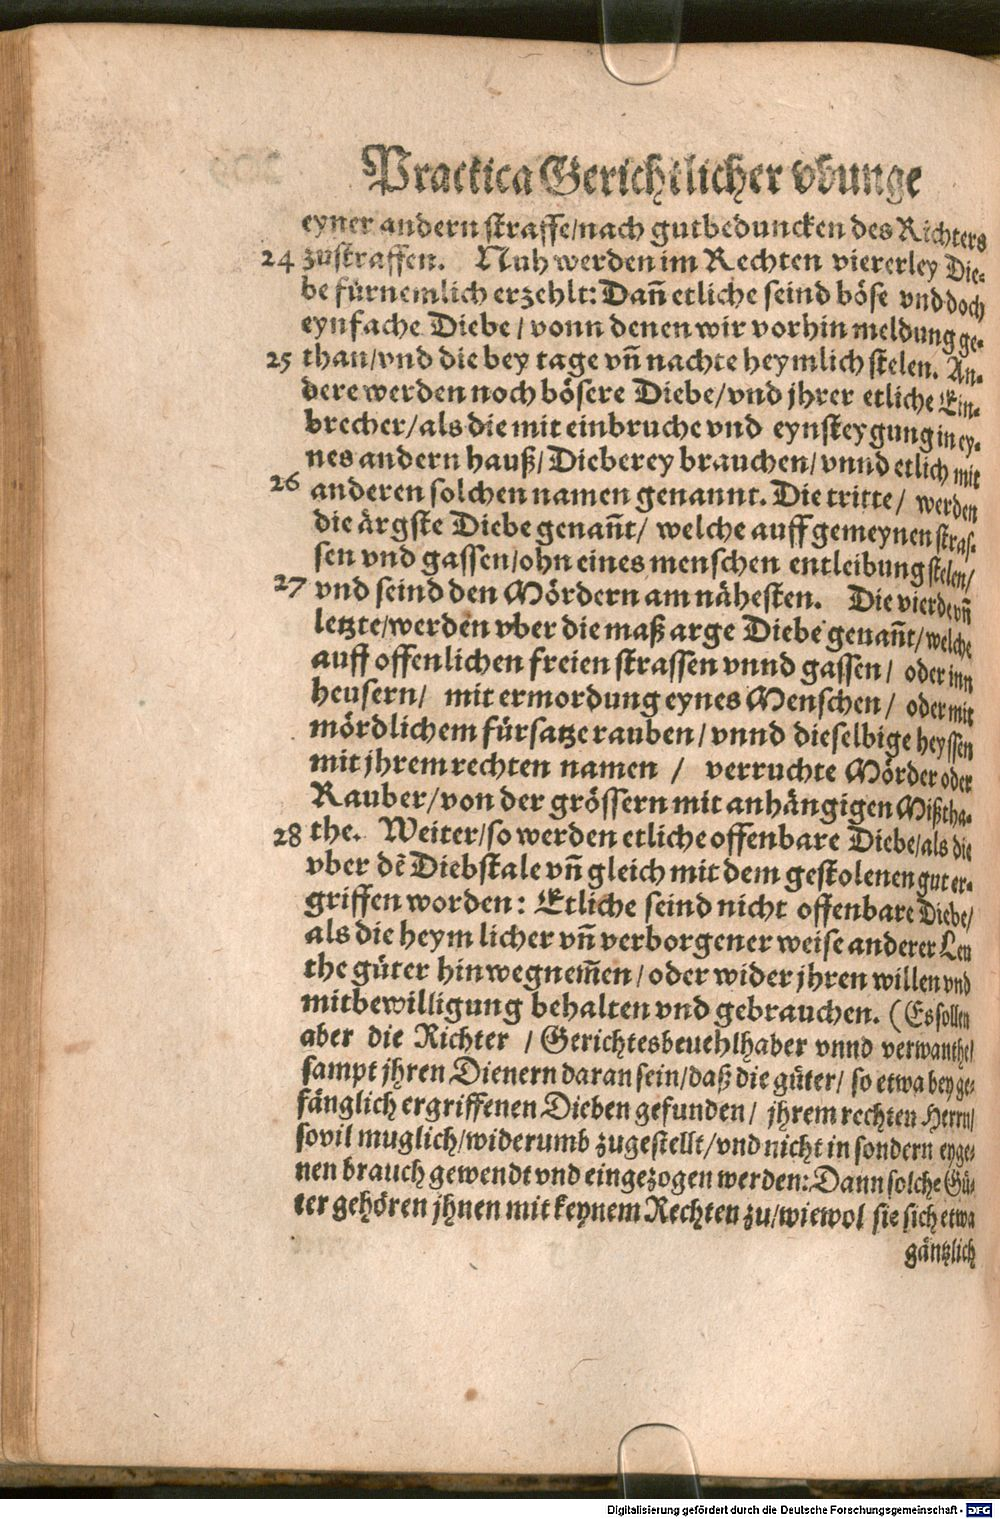 Practica Gerichtlicher vbunge
eyner andern straffe/nach gutbeduncken des Richters
24 zustraffen. Nuh werden im Rechten viererley Die-
be fürnemlich erzehlt: Dañ etliche seind böse vnd doch
eynfache Diebe / vonn denen wir vorhin meldung ge-
25 than/vnd die bey tage vñ nachte heymlich stelen. An-
dere werden noch bösere Diebe/vnd jhrer etliche Ein-
brecher/als die mit einbruche vnd eynsteygung in ey-
nes andern hauß/Dieberey brauchen/vnnd etlich mit
26 anderen solchen namen genannt. Die tritte/ werden
die ärgste Diebe genañt/ welche auff gemeynen stras-
sen vnd gassen/ohn eines menschen entleibung stelen/
27 vnd seind den Mördern am nähesten. Die vierde vñ
letzte/werden vber die maß arge Diebe genañt/welche
auff offenlichen freien strassen vnnd gassen/ oder inn
heusern/ mit ermordung eynes Menschen/ oder mit
mördlichem fürsatze rauben/vnnd dieselbige heyssen
mit jhrem rechten namen / verruchte Mörder oder
Rauber/von der grössern mit anhängigen Mißtha-
28 the. Weiter/so werden etliche offenbare Diebe/als die
vber dẽ Diebstale vñ gleich mit dem gestolenen gut er-
griffen worden: Etliche seind nicht offenbare Diebe/
als die heymlicher vñ verborgener weise anderer Leu
the güter hinwegnem̃en/oder wider jhren willen vnd
mitbewilligung behalten vnd gebrauchen. (Es sollen
aber die Richter / Gerichtesbeuehlhaber vnnd verwanthe/
sampt jhren Dienern daran sein/daß die güter/ so etwa bey ge-
fänglich ergriffenen Dieben gefunden/ jhrem rechten Herrn/
sovil muglich/widerumb zugestellt/vnd nicht in sondern eyge-
nen brauch gewendt vnd eingezogen werden: Dann solche Gü-
ter gehören jhnen mit keynem Rechten zu/wiewol sie sich etwa
gäntzlich
Digitalisierung gefördert durch die Deutsche Forschungsgemeinschaft - DFG